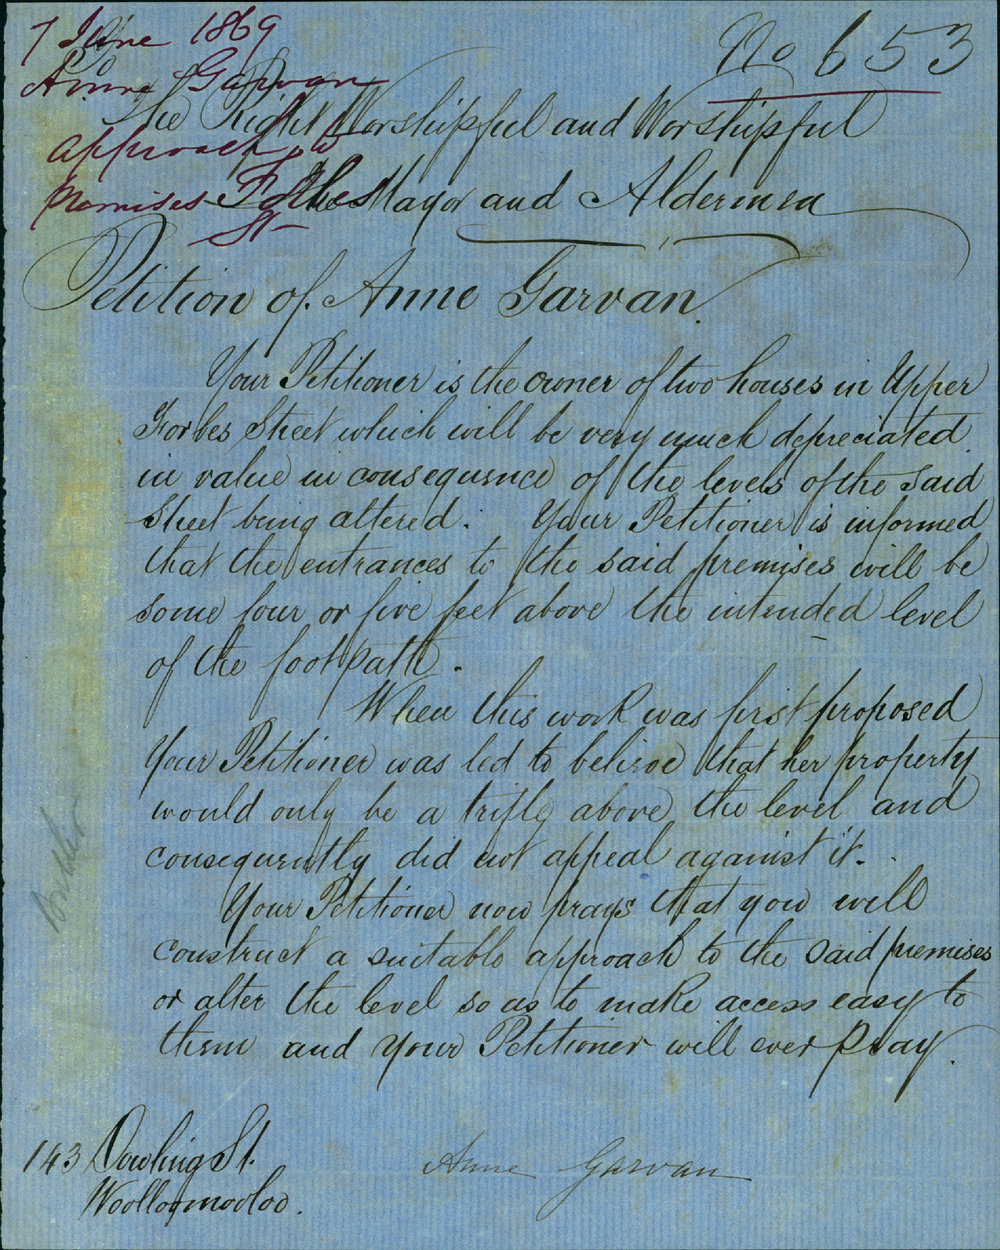 7 June 1869
Anne Garvan
approach to
premises Forbes
St
No 653
The Right Worshipful and Worshipful
The Mayor and Aldermen
Petition of Anne Garvan.
Your Petitioner is the owner of two houses in Upper
Forbes Street which will be very much depreciated
in value in consequence of the levels of the said
Street being altered. Your Petitioner is informed
that the entrances to the said premises will be
some four or five feet above the intended level
of the footpath.
When this work was first proposed
Your Petitioner was led to believe that her property
would only be a trifle above the level and
consequently did not appeal against it.
Your Petitioner now prays that you will
construct a suitable approach to the said premises
or alter the level so as to make access easy to
them and your Petitioner will ever pray.
143 Dowling St.
Woolloomooloo.
Anne Garvan